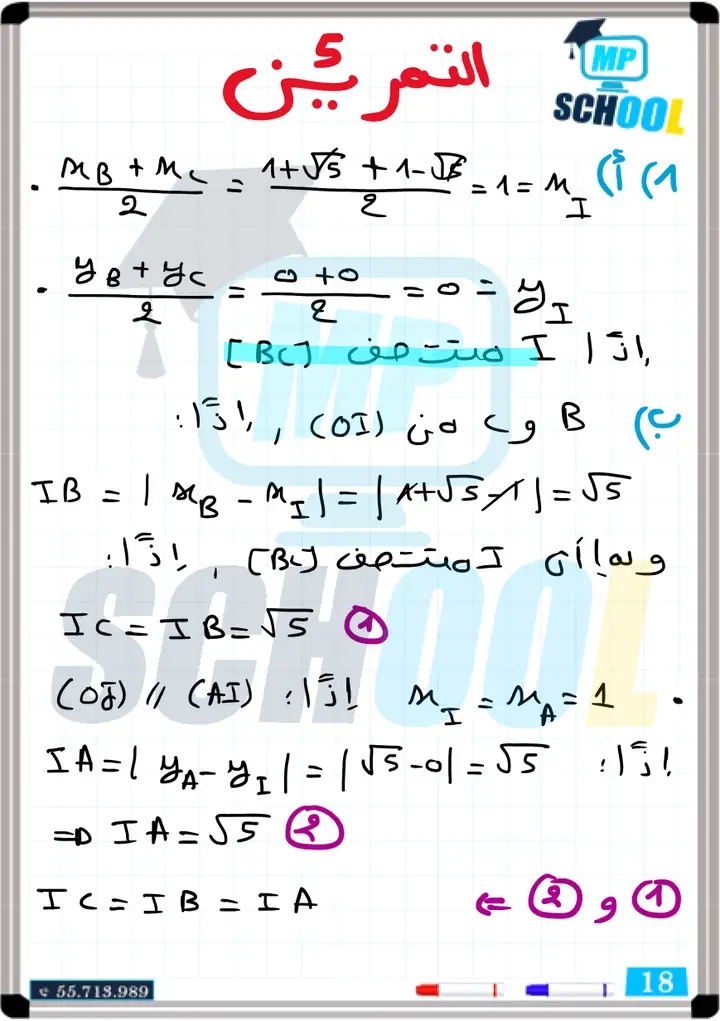 MP
SCHOOL
التمرين 5
1) أ)
• (x_B + x_C)/2 = (1+√5 + 1-√5)/2 = 1 = x_I
• (y_B + y_C)/2 = (0+0)/2 = 0 = y_I
إذًا I منتصف [BC]
ب) B و C من (OI) , إذًا:
IB = | x_B - x_I | = | 1+√5-1 | = √5
وبما أن I منتصف [BC] , إذًا:
IC = IB = √5 ①
• x_I = x_A = 1 إذًا: (OJ) // (AI)
إذًا: IA = | y_A - y_I | = | √5 - 0 | = √5
⇒ IA = √5 ②
① و ② ⇐ IC = IB = IA
55.713.989
18